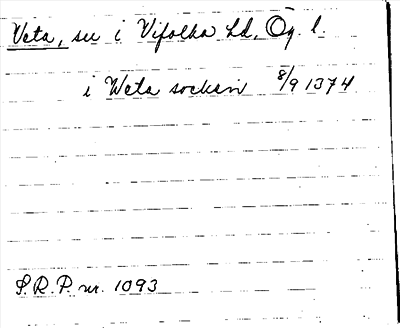 Veta, su i Vifolka hd, Ög. l.
i Weta sockin 8/9 1374
S.R.P. nr. 1093